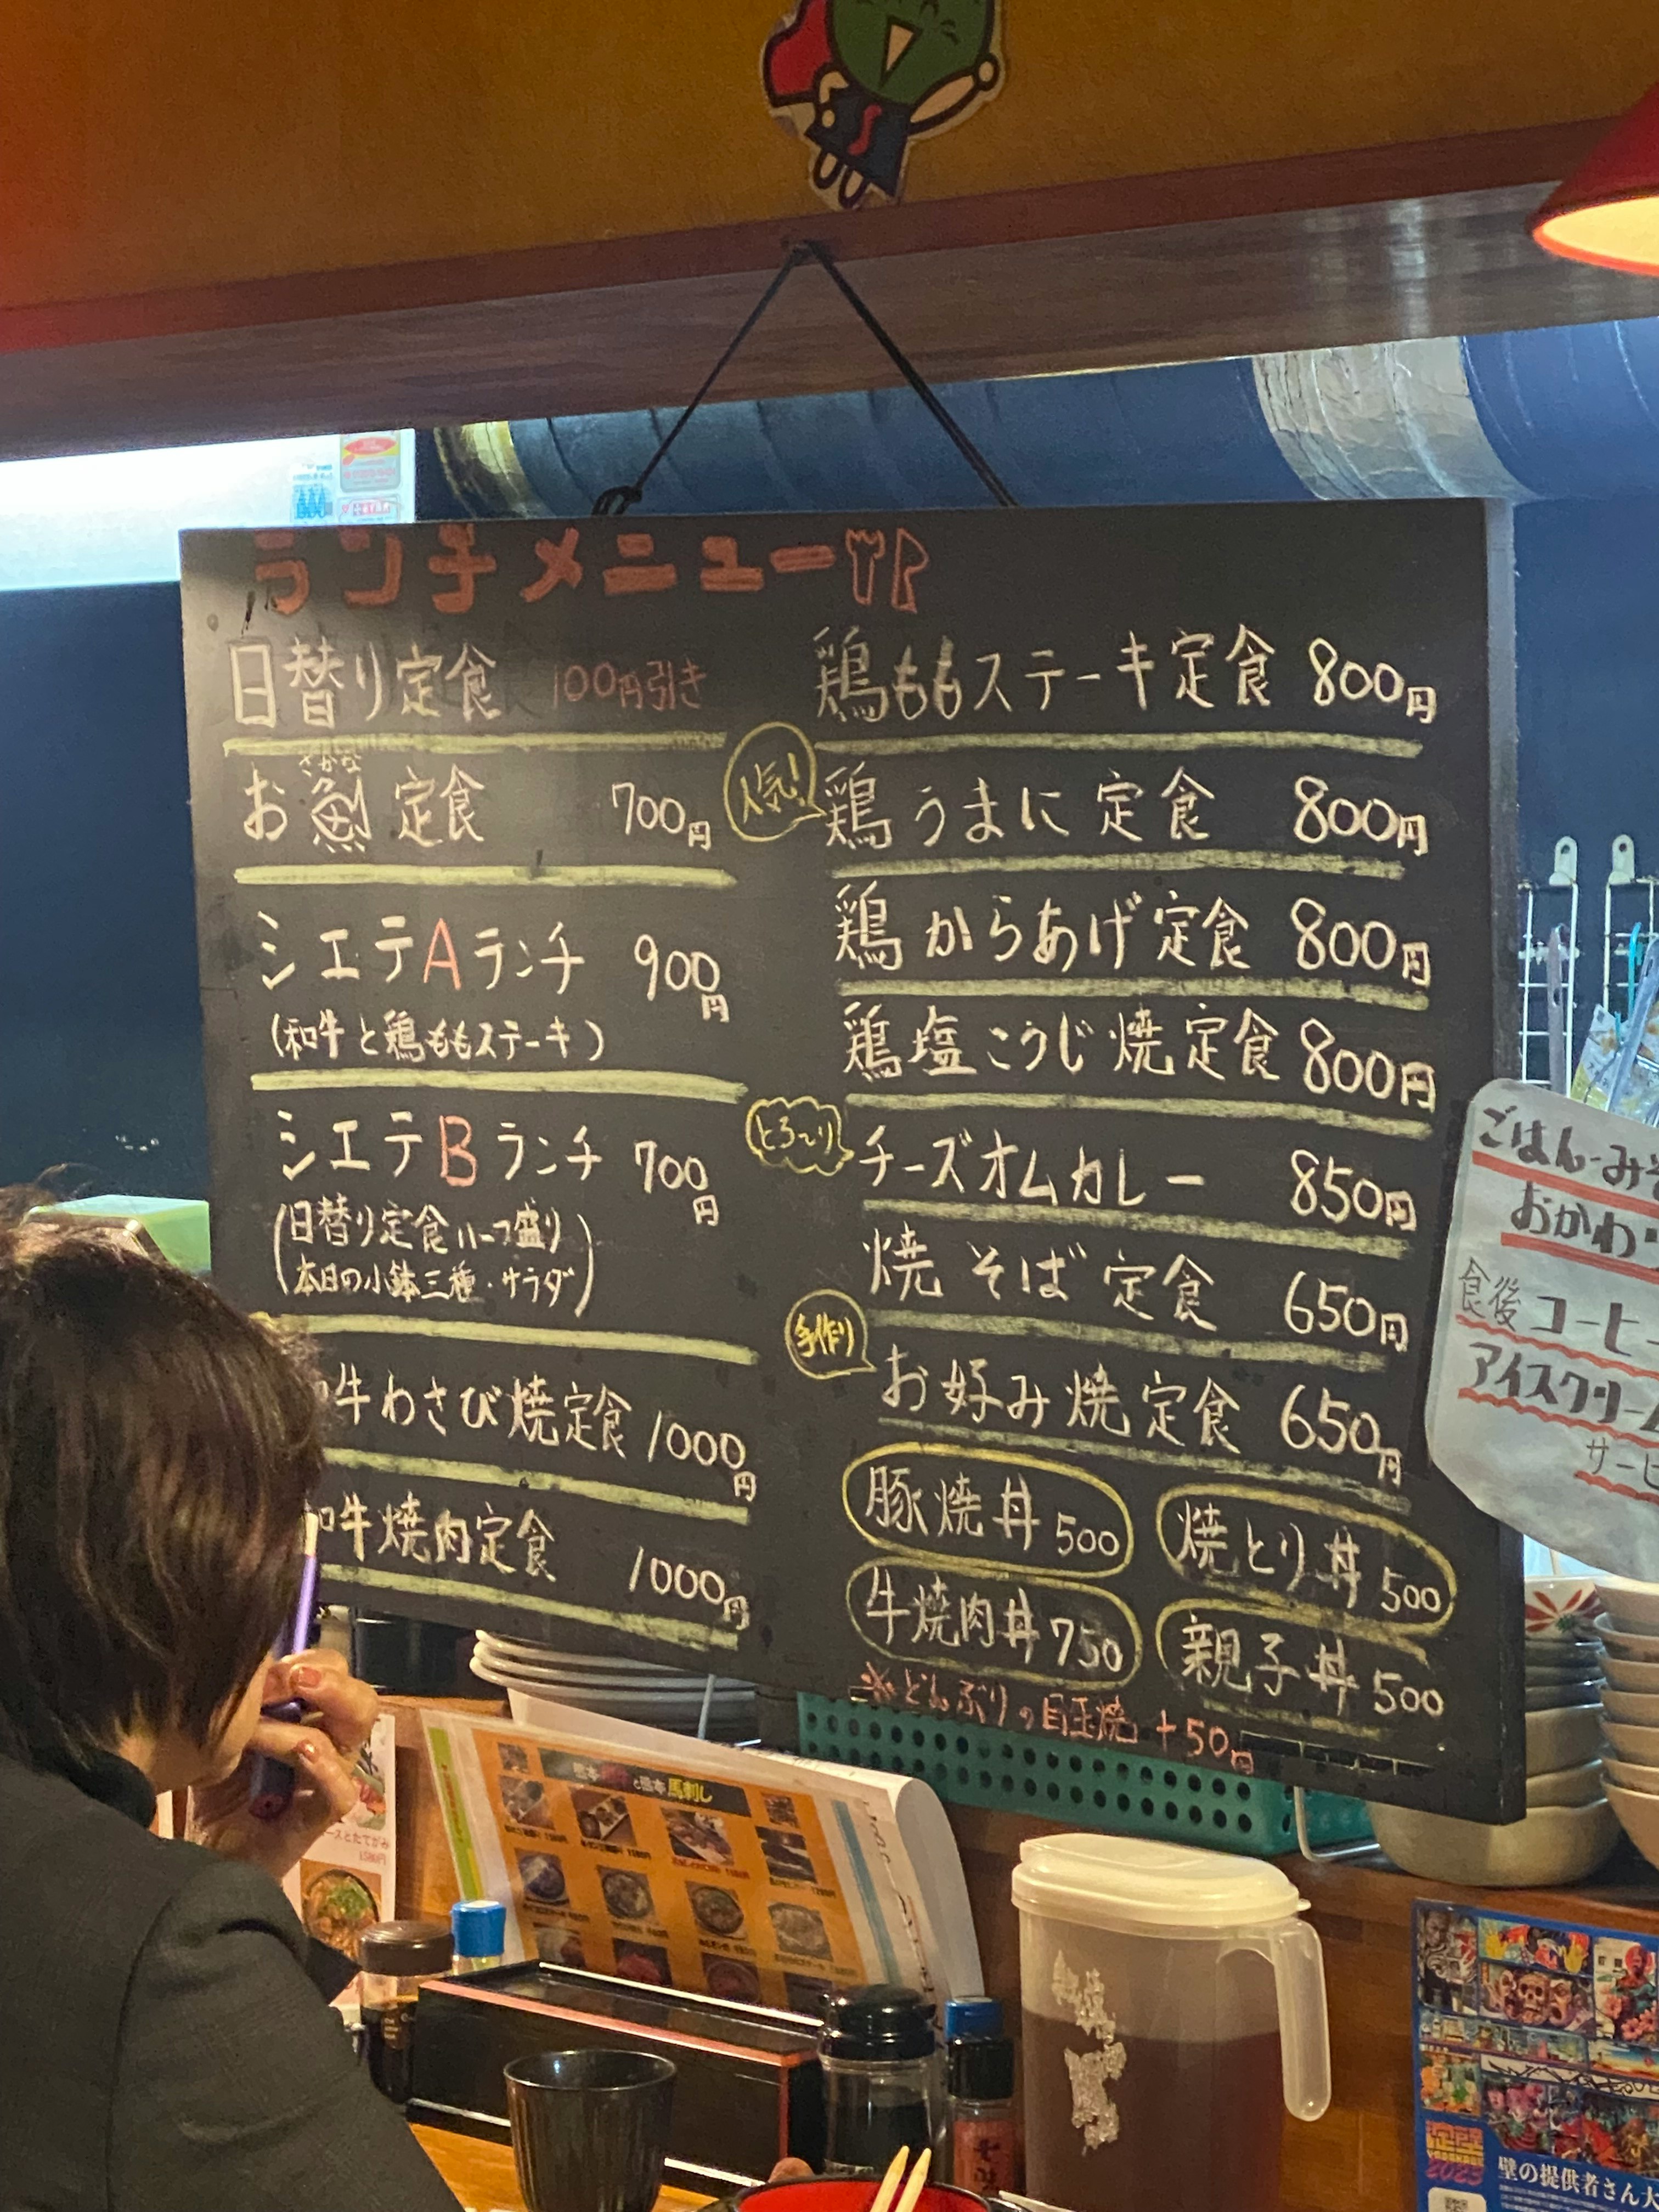 ランチメニュー
日替り定食 100円引き
さかな
お魚定食 700円
シエテAランチ 900円
(和牛と鶏ももステーキ)
シエテBランチ 700円
(日替り定食ハーフ盛り
本日の小鉢三種・サラダ)
牛わさび焼定食 1000円
和牛焼肉定食 1000円
鶏ももステーキ定食 800円
人気!
鶏うまに定食 800円
鶏からあげ定食 800円
鶏塩こうじ焼定食 800円
とろ〜り
チーズオムカレー 850円
焼そば定食 650円
手作り
お好み焼定食 650円
豚焼丼 500
焼とり丼 500
牛焼肉丼 750
親子丼 500
※どんぶりの目玉焼 +50円
ごはん・みそ
おかわり
食後コーヒー
アイスクリーム
サービ
馬刺し
2023
壁の提供者さん大